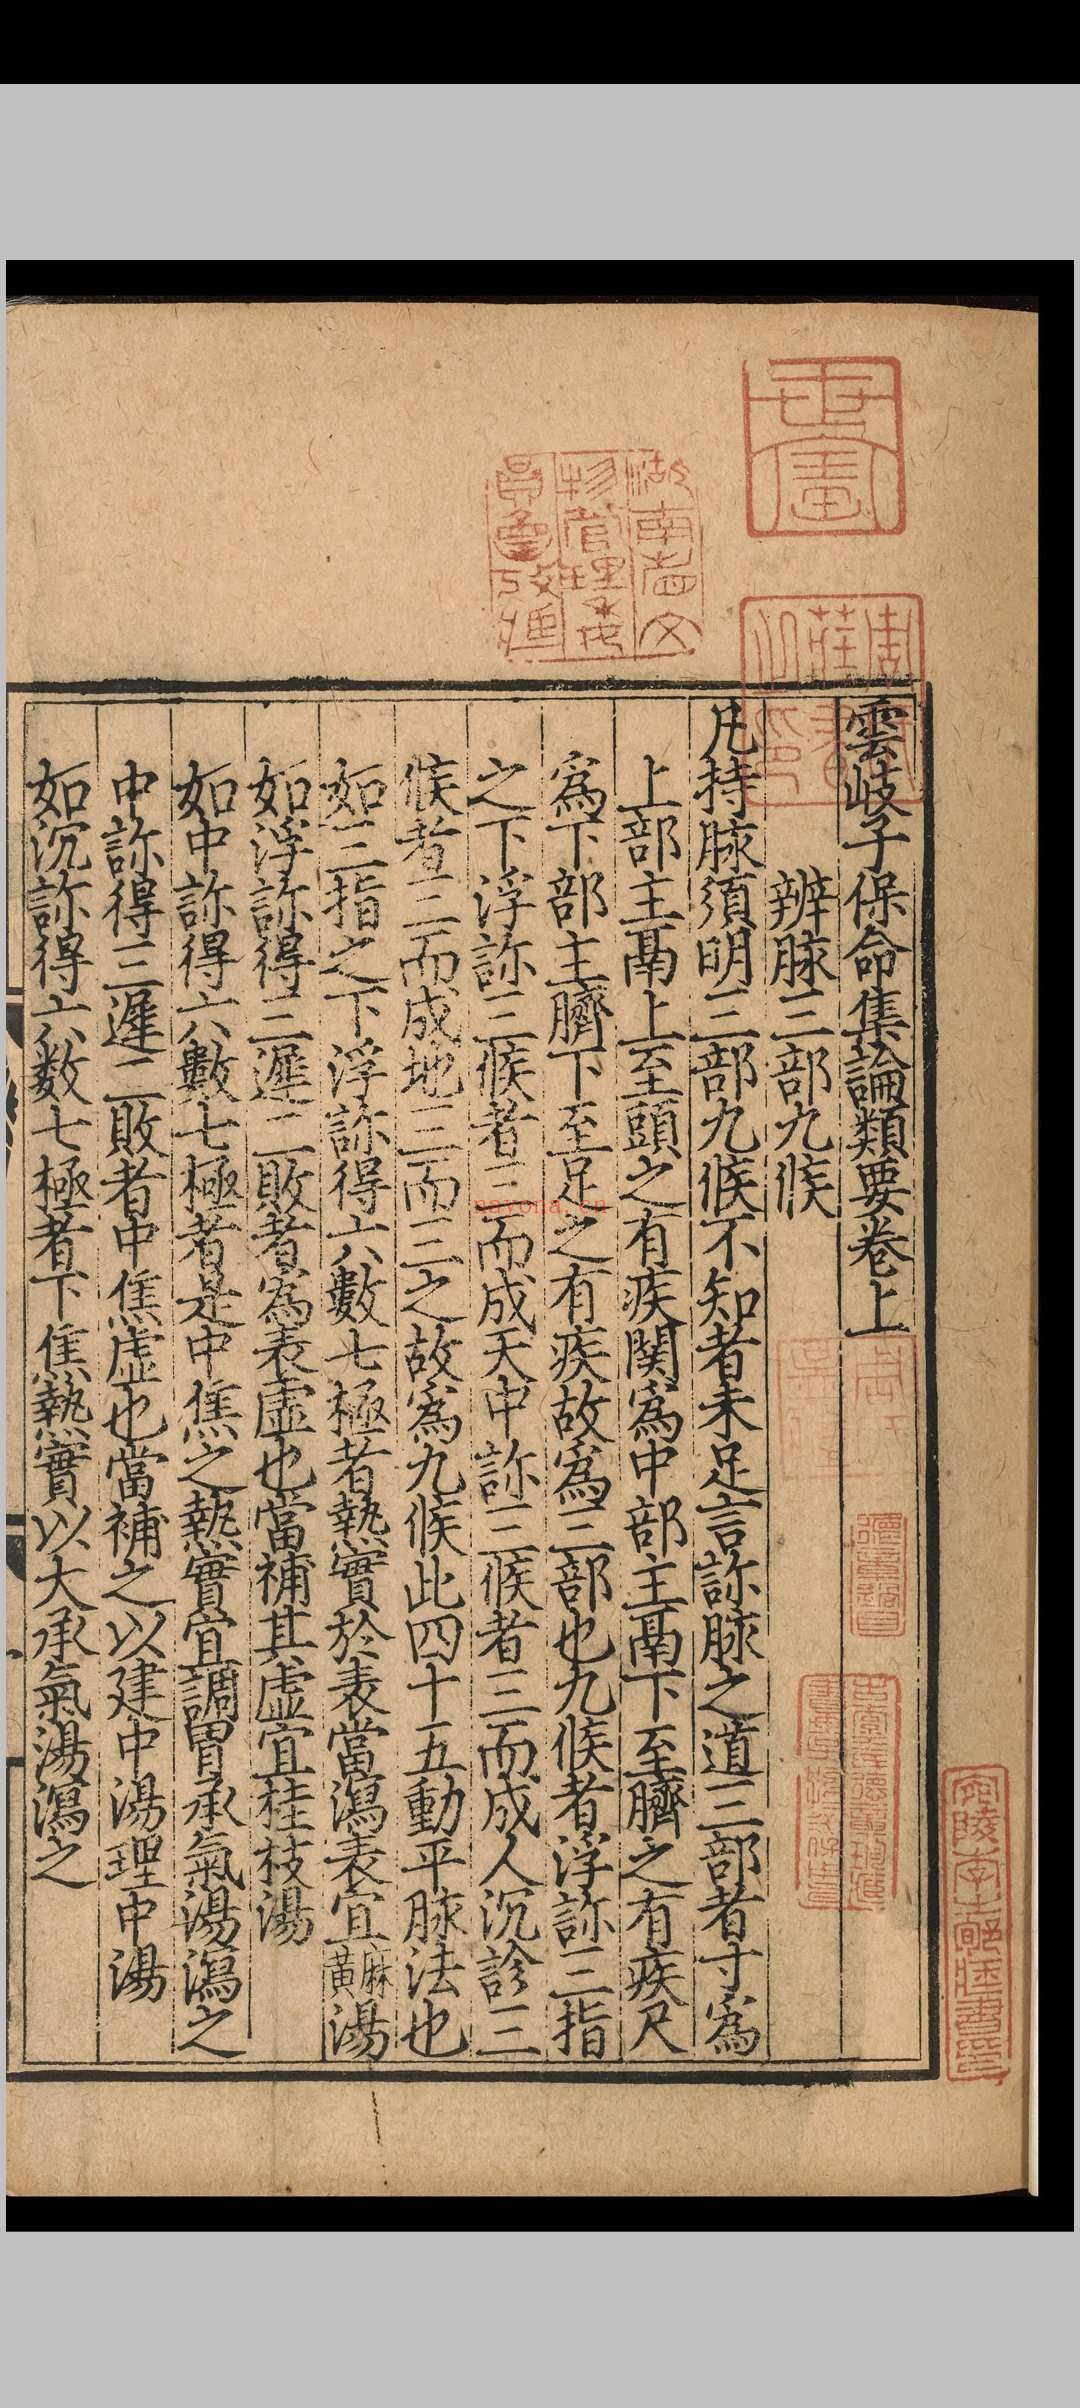 雲岐子保命集論類要卷上
辨脉三部九候
凡持脉須明三部九候不知者未足言診脉之道三部者寸爲
上部主鬲上至頭之有疾関爲中部主鬲下至臍之有疾尺
爲下部主臍下至足之有疾故爲三部也九候者浮診三指
之下浮診三候者三而成天中診三候者三而成人沉診三
候者三而成地三而三之故爲九候此四十五動平脉法也
如三指之下浮診得六數七極者熱實於表當瀉表宜麻黄湯
如浮診得三遲二敗者為表虛也當補其虛宜桂枝湯
如中診得六數七極者是中焦之熱實宜調胃承氣湯瀉之
中診得三遲二敗者中焦虛也當補之以建中湯理中湯
如沉診得六数七極者下焦熱實以大承氣湯瀉之
湖南省文
物管理委
員會收藏
nayona.cn